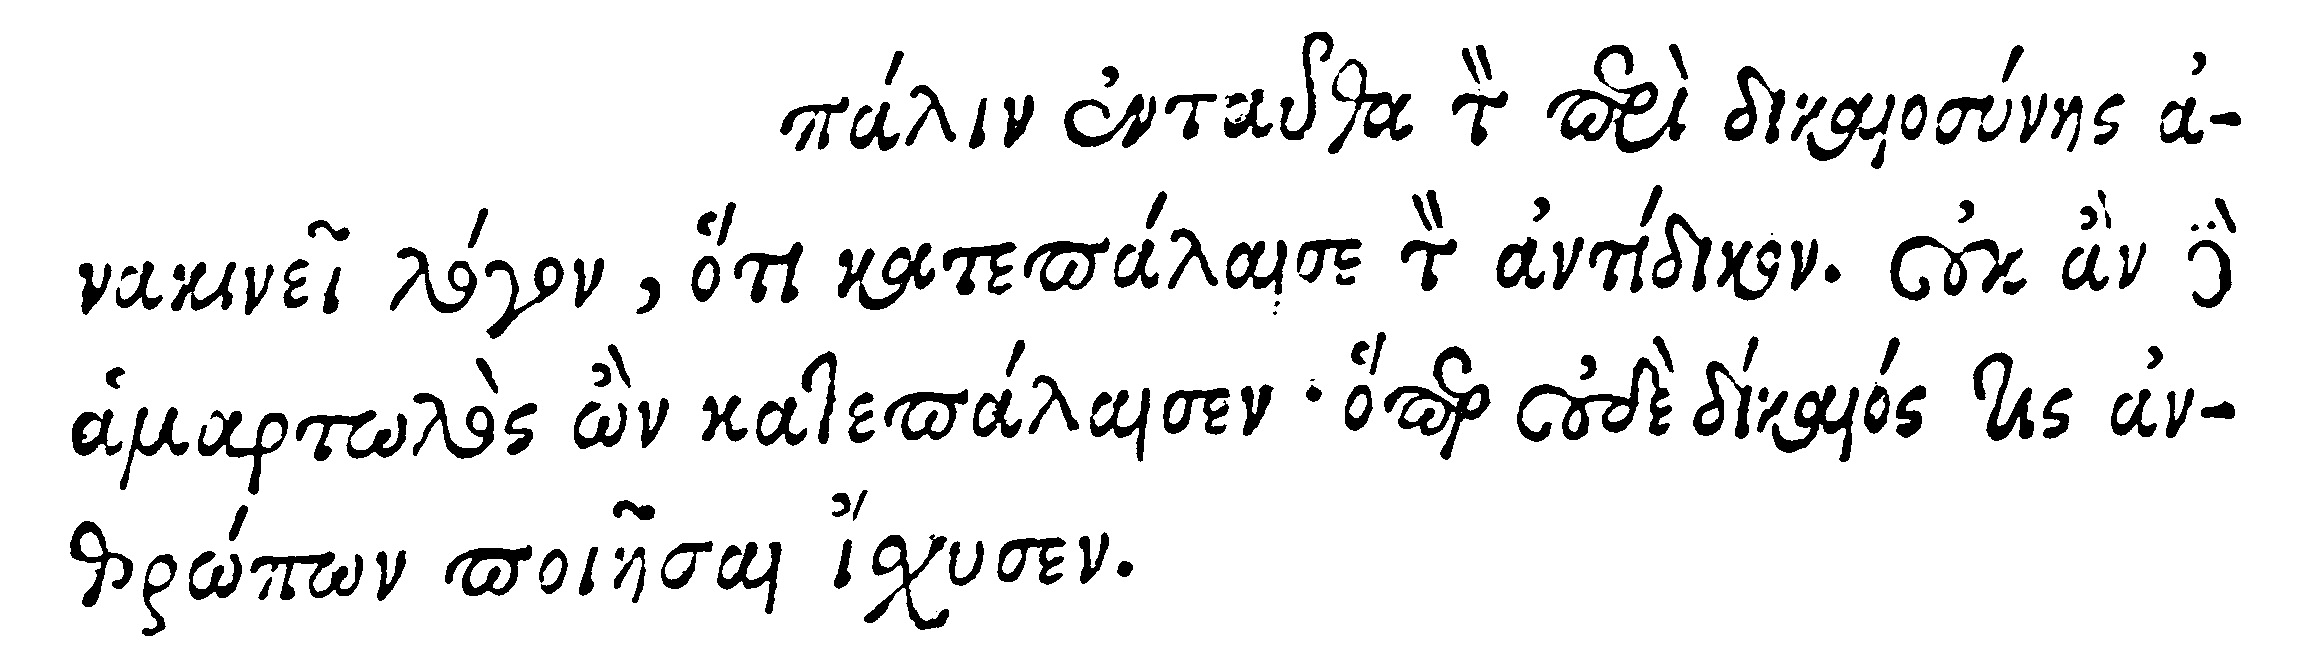 πάλιν ἐνταῦθα τὸν περὶ δικαιοσύνης ἀ-
νακινεῖ λόγον, ὅτι κατεπάλαισε τὸν ἀντίδικον. οὐκ ἂν δὲ
ἁμαρτωλὸς ὢν κατεπάλαισεν· ὅπερ οὐδὲ δίκαιός τις ἀν-
θρώπων ποιῆσαι ἴσχυσεν.